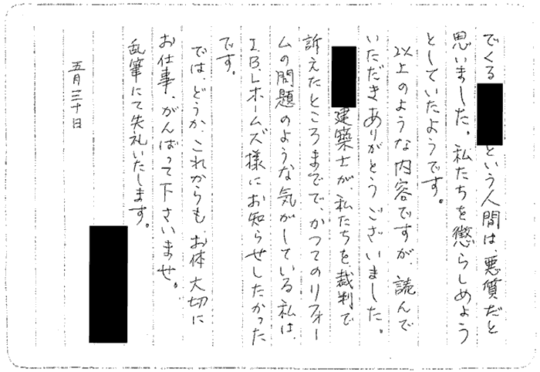 でくる
という人間は、悪質だと
思いました。私たちを懲らしめよう
としていたようです。
以上のような内容ですが、読んで
いただきありがとうございました。
建築士が、私たちを裁判で
訴えたところまでで、かつてのリフォー
ムの問題のような気がしている私は、
I.B.Lホームズ様にお知らせしたかった
です。
では、どうか、これからも お体大切に
お仕事、がんばって下さいませ。
乱筆にて失礼いたします。
五月三十日